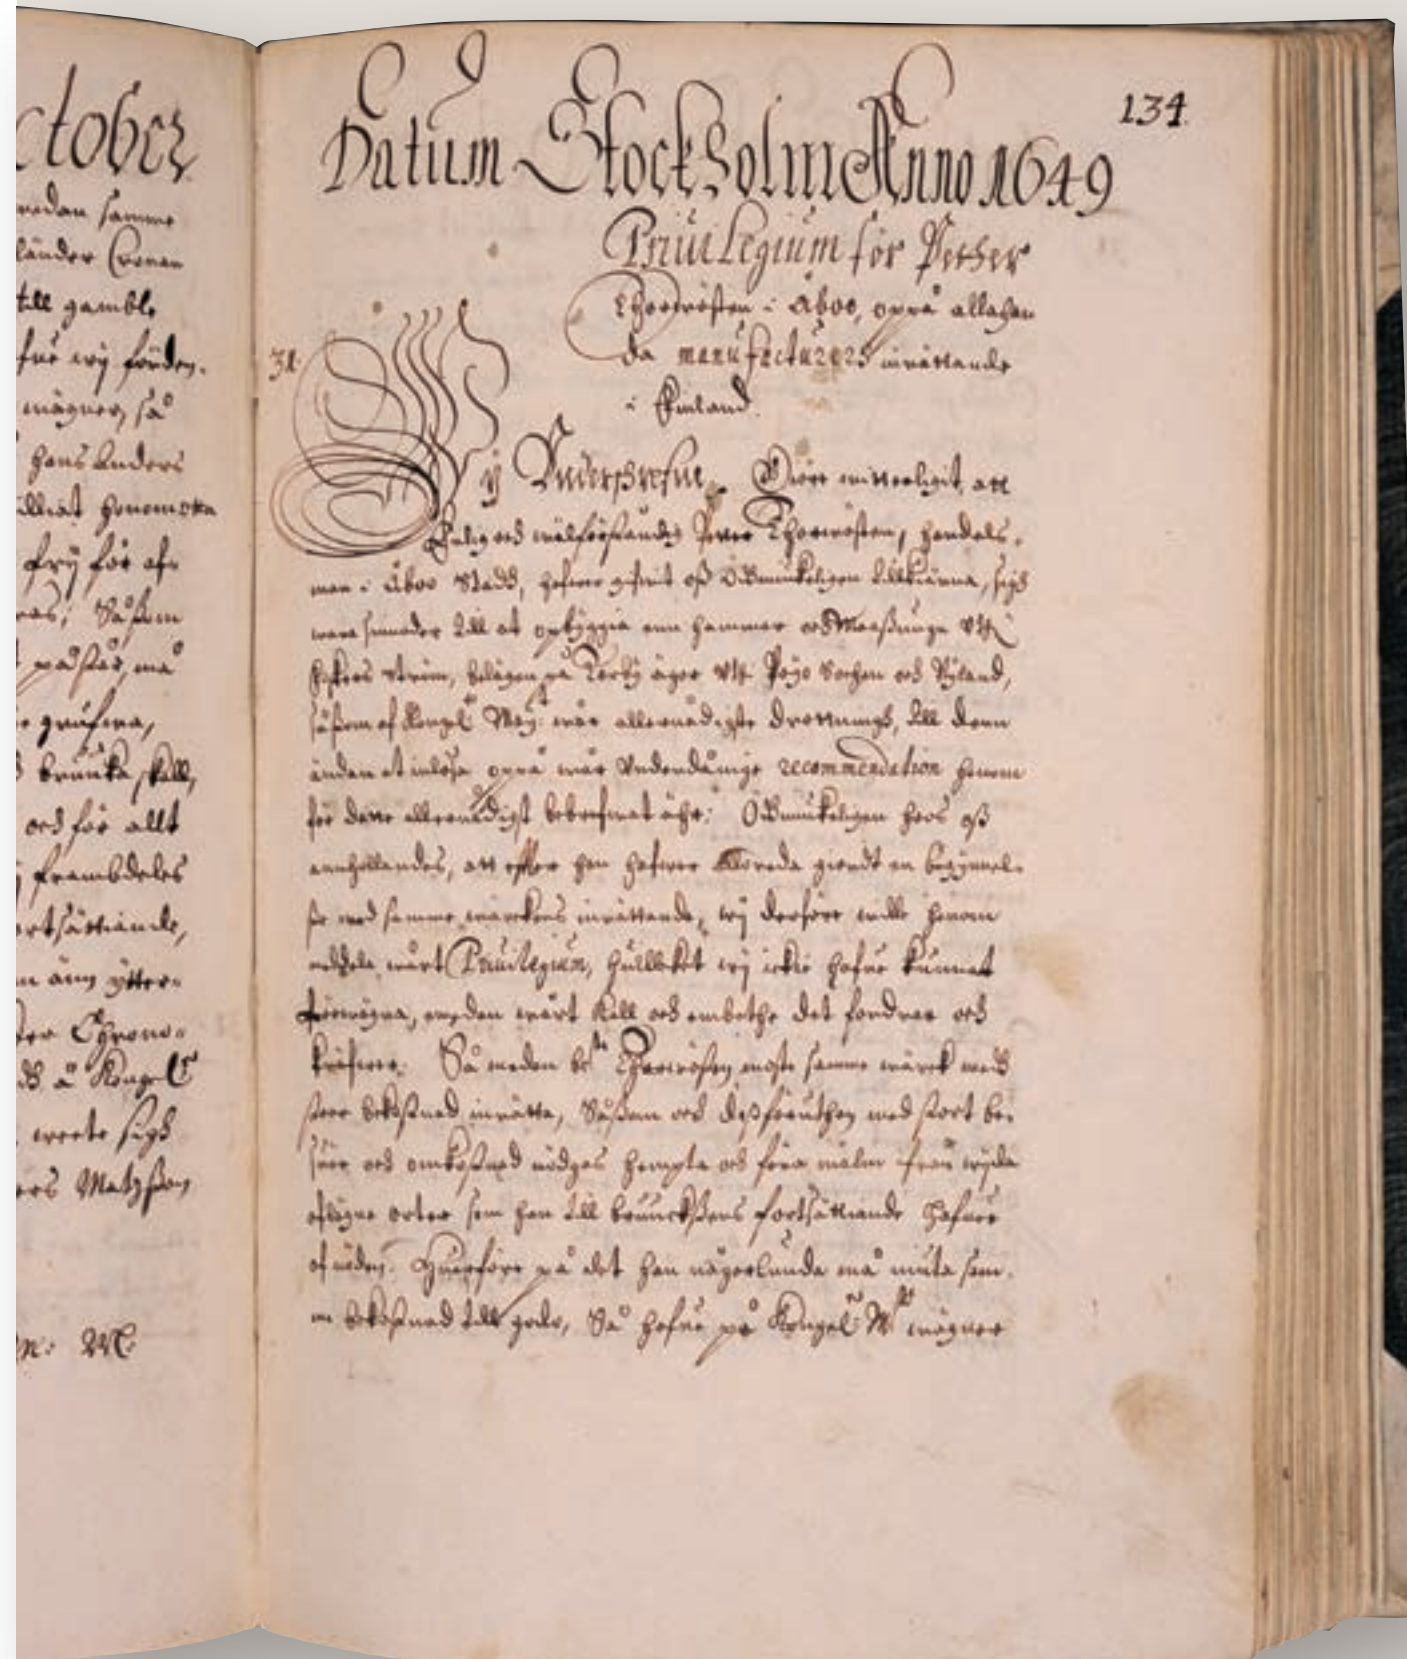 ctober
medan samme
länder Cronan
till gamble
fue wij förden-
wägner, så
Hans Anders
illiat honom
frij för af-
Såsom
påstår, må
grufwa,
bruuka skall,
och för allt
frambdeles
ortsättiande,
änn ytter-
Chrono-
å Kongl
weete sigh
ers Matzson
M:
134.
Datum Stockholm Anno 1649
Priuilegium för Pether
Thorwösten i Åboo, oppå allahan
da manufacturers inrättande
i Finland.
31.
Wij Underschrefne Giöre witterligit, att
Ehrlig och wälförståndig Peter Thorwösten, handels-
man i Åboo Stadd, hafwer gifwit oss ödmiukeligen tillkänna, sigh
wara sinnader till at opbyggia enn hammar och Massunge vthi
Fiskers ström, belägen på Koskis äger vthi Poijo Sochen och Nyland,
såsom af Kongl: May:tt wår allernådigste drottningh, till denn
ändan at inlösa oppå wår underdånige recommendation honom
för dette allernådigst bebrefwat ähr: Ödmiukeligen hoos oss
annhollandes, att effter han hafwer allereda giordt en begynnel-
se med samme wärckens inrättande, wij derföre wille honom
meddela wårt Priuilegium, huilket wij icke hafue kunnat
förwägra, emedan wårt kall och embethe det fordrar och
kräfwer. Så medan be:te Thorwösten moste samme wärck medh
stoor bekostnad inrätta, Såsom och dessföruthan med stort be-
swär och omkostnad nödgas hempta och föra malm ifrån wijda
aflägne orter som han till bruucksens fortsättiande hafuer
af nöden. Huarföre på det han någorlunda må niuta sam-
me bekostnad till godo, Så hafue på Kongl: M:tz wägner